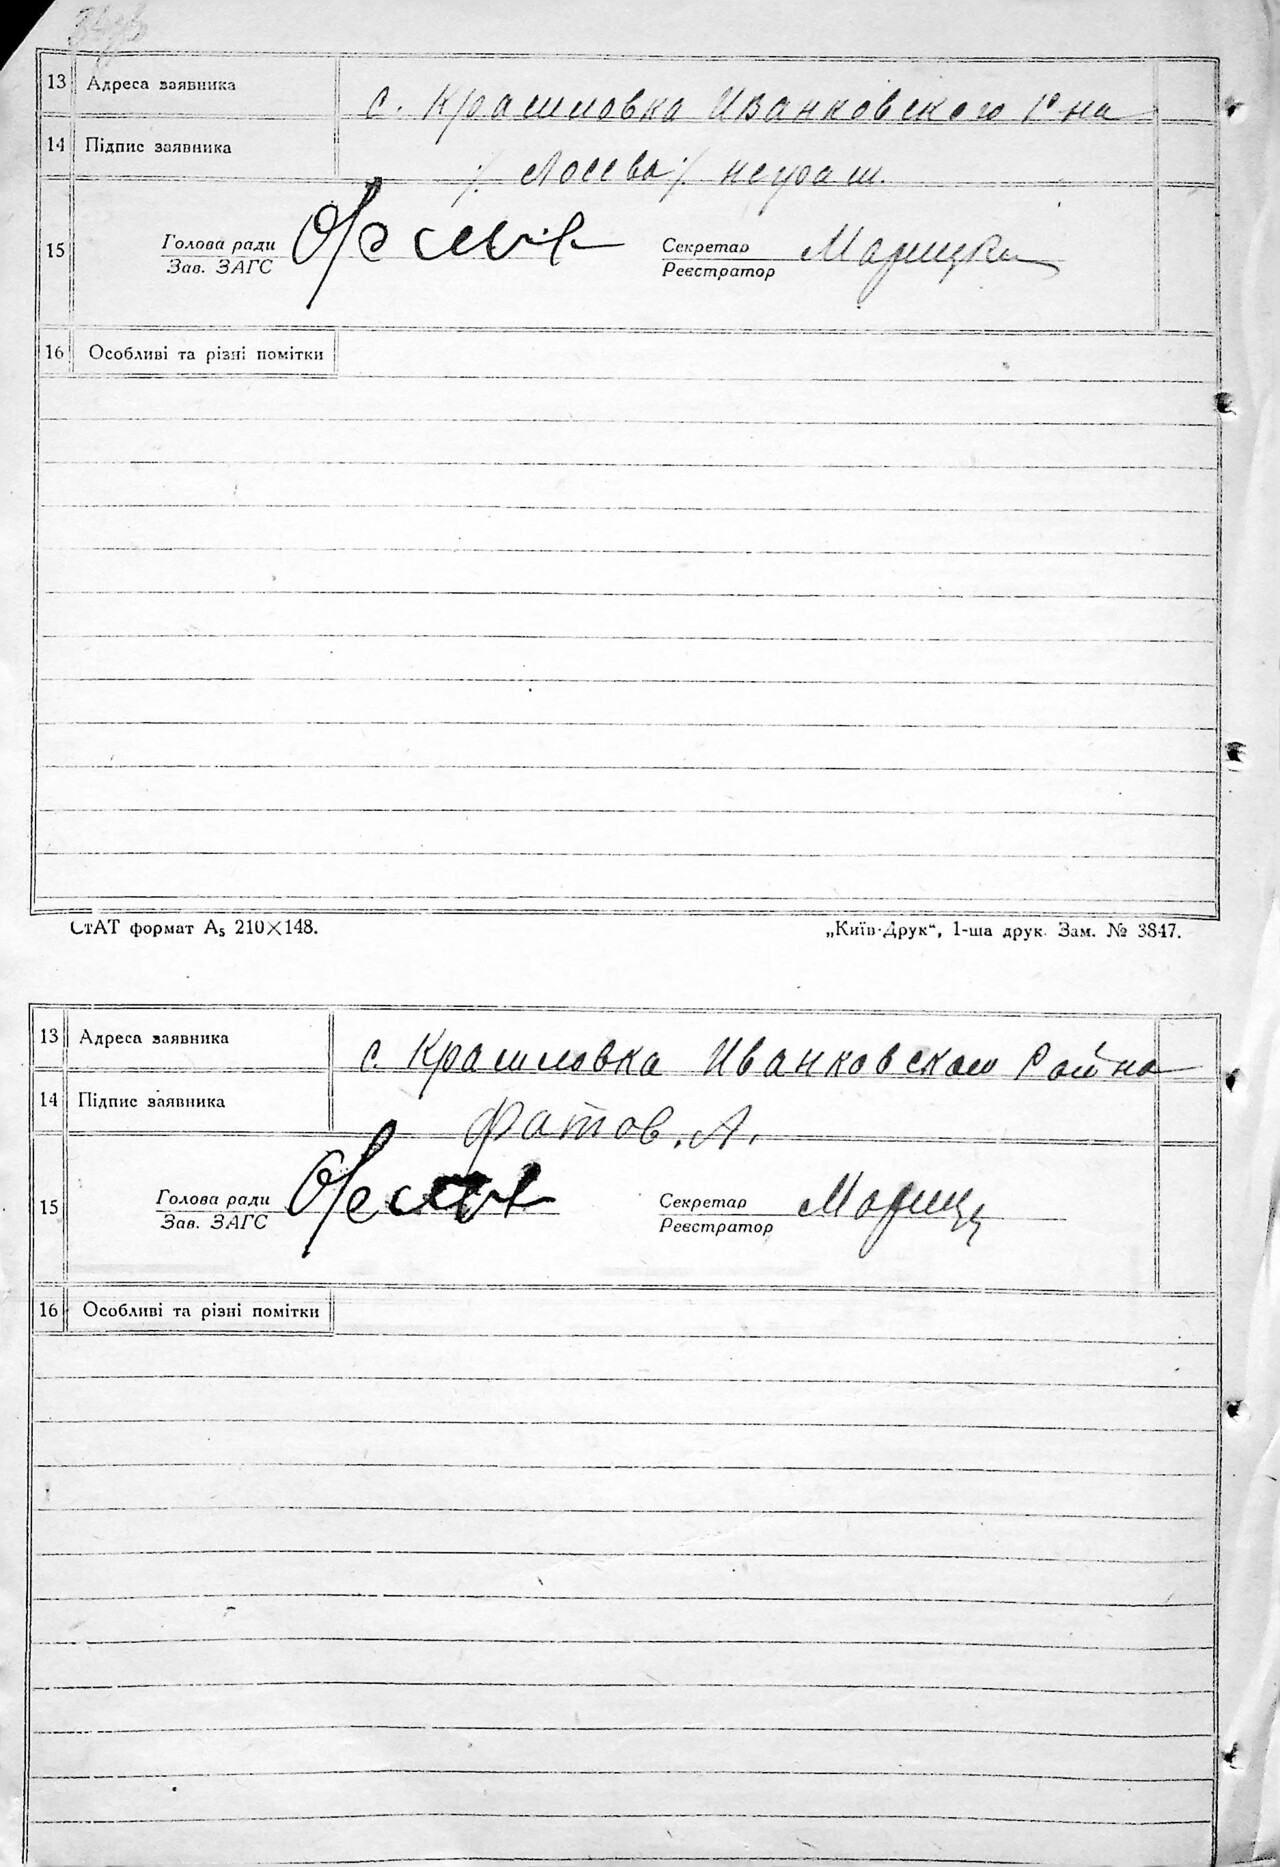 13 Адреса заявника с. Крашиловка Иванковского Р-на
14 Підпис заявника /. Лосева ./. неграм.
15 Голова ради Секретар Марицка
Зав. ЗАГС Реєстратор
16 Особливі та різні помітки
СтАТ формат А₅ 210×148. „Київ-Друк“, 1-ша друк. Зам. № 3847.
13 Адреса заявника с. Крашиловка Иванковского Района
14 Підпис заявника Фатов. А.
15 Голова ради Секретар Мариц
Зав. ЗАГС Реєстратор
16 Особливі та різні помітки